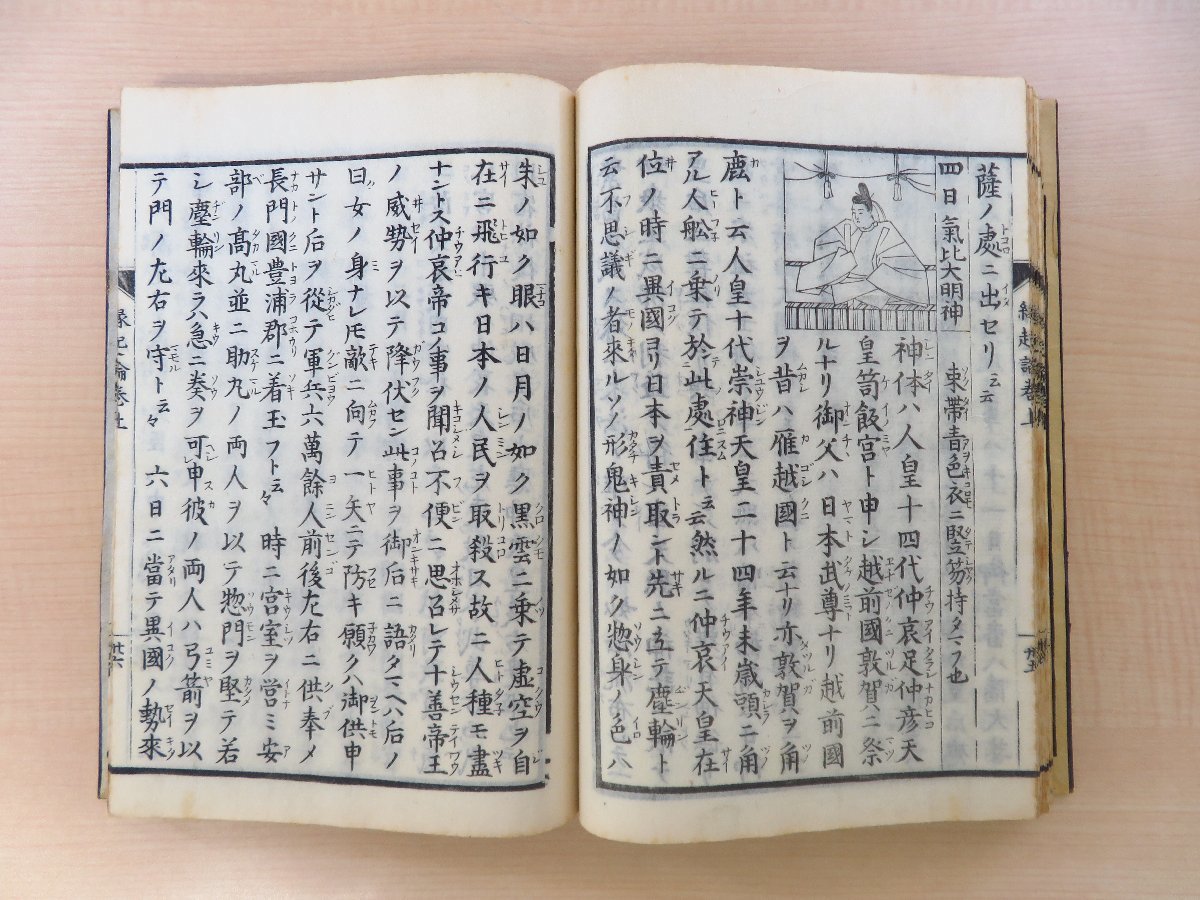 薩ノ處ニ出セリ云云
四日 氣比大明神 束帶青色衣ニ竪笏持タマフ也
神体ハ人皇十四代仲哀足仲彦天
皇笥飯宮ト申シ越前國敦賀ニ祭
ルナリ御父ハ日本武尊ナリ越前國
ヲ昔ハ雁越國ト云ナリ亦敦賀ヲ角
鹿ト云人皇十代崇神天皇二十四年未歳頭ニ角
アル人舩ニ乗テ於此處住ト云云然ルニ仲哀天皇在
位ノ時ニ異國ヨリ日本ヲ責取ント先ニ立テ塵輪ト
云不思議ノ者來ルソノ形鬼神ノ如ク惣身ノ色ハ
朱ノ如ク眼ハ日月ノ如ク黒雲ニ乗テ虚空ヲ自
在ニ飛行キ日本ノ人民ヲ取殺ス故ニ人種モ盡
ナントス仲哀帝コノ事ヲ聞召不便ニ思召レテ十善帝王
ノ威勢ヲ以テ降伏セン此事ヲ御后ニ語タマヘハ后ノ
曰女ノ身ナレモ敵ニ向テ一矢ニテ防キ願クハ御供申
サント后ヲ從テ軍兵六萬餘人前後左右ニ供奉メ
長門國豊浦郡ニ着玉フト云々 時ニ宮室ヲ営ミ安
部ノ髙丸並ニ助丸ノ両人ヲ以テ惣門ヲ堅テ若
シ塵輪來ラハ急ニ奏ヲ可申彼ノ両人ハ弓箭ヲ以
テ門ノ左右ヲ守ト云々 六日ニ當テ異國ノ勢來
縁起論巻上
廿六